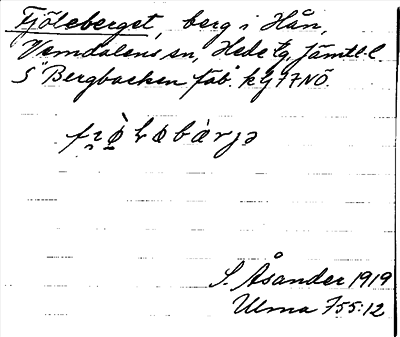 Fjöleberget, berg i Hån,
Vemdalens sn, Hede tg, Jämtl. l.
S Bergbacken fäb. kg 17 NÖ.
S. Åsander 1919
Ulma 755:12